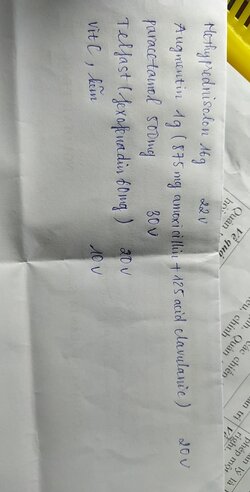 Methylprednisolon 16g 22v
Augmentin 1g (875mg amoxicillin + 125 acid clavulanic) 20v
paracetamol 500mg 30v
Telfast (fexofenadin 60mg) 20v
vit C, kẽm 10v